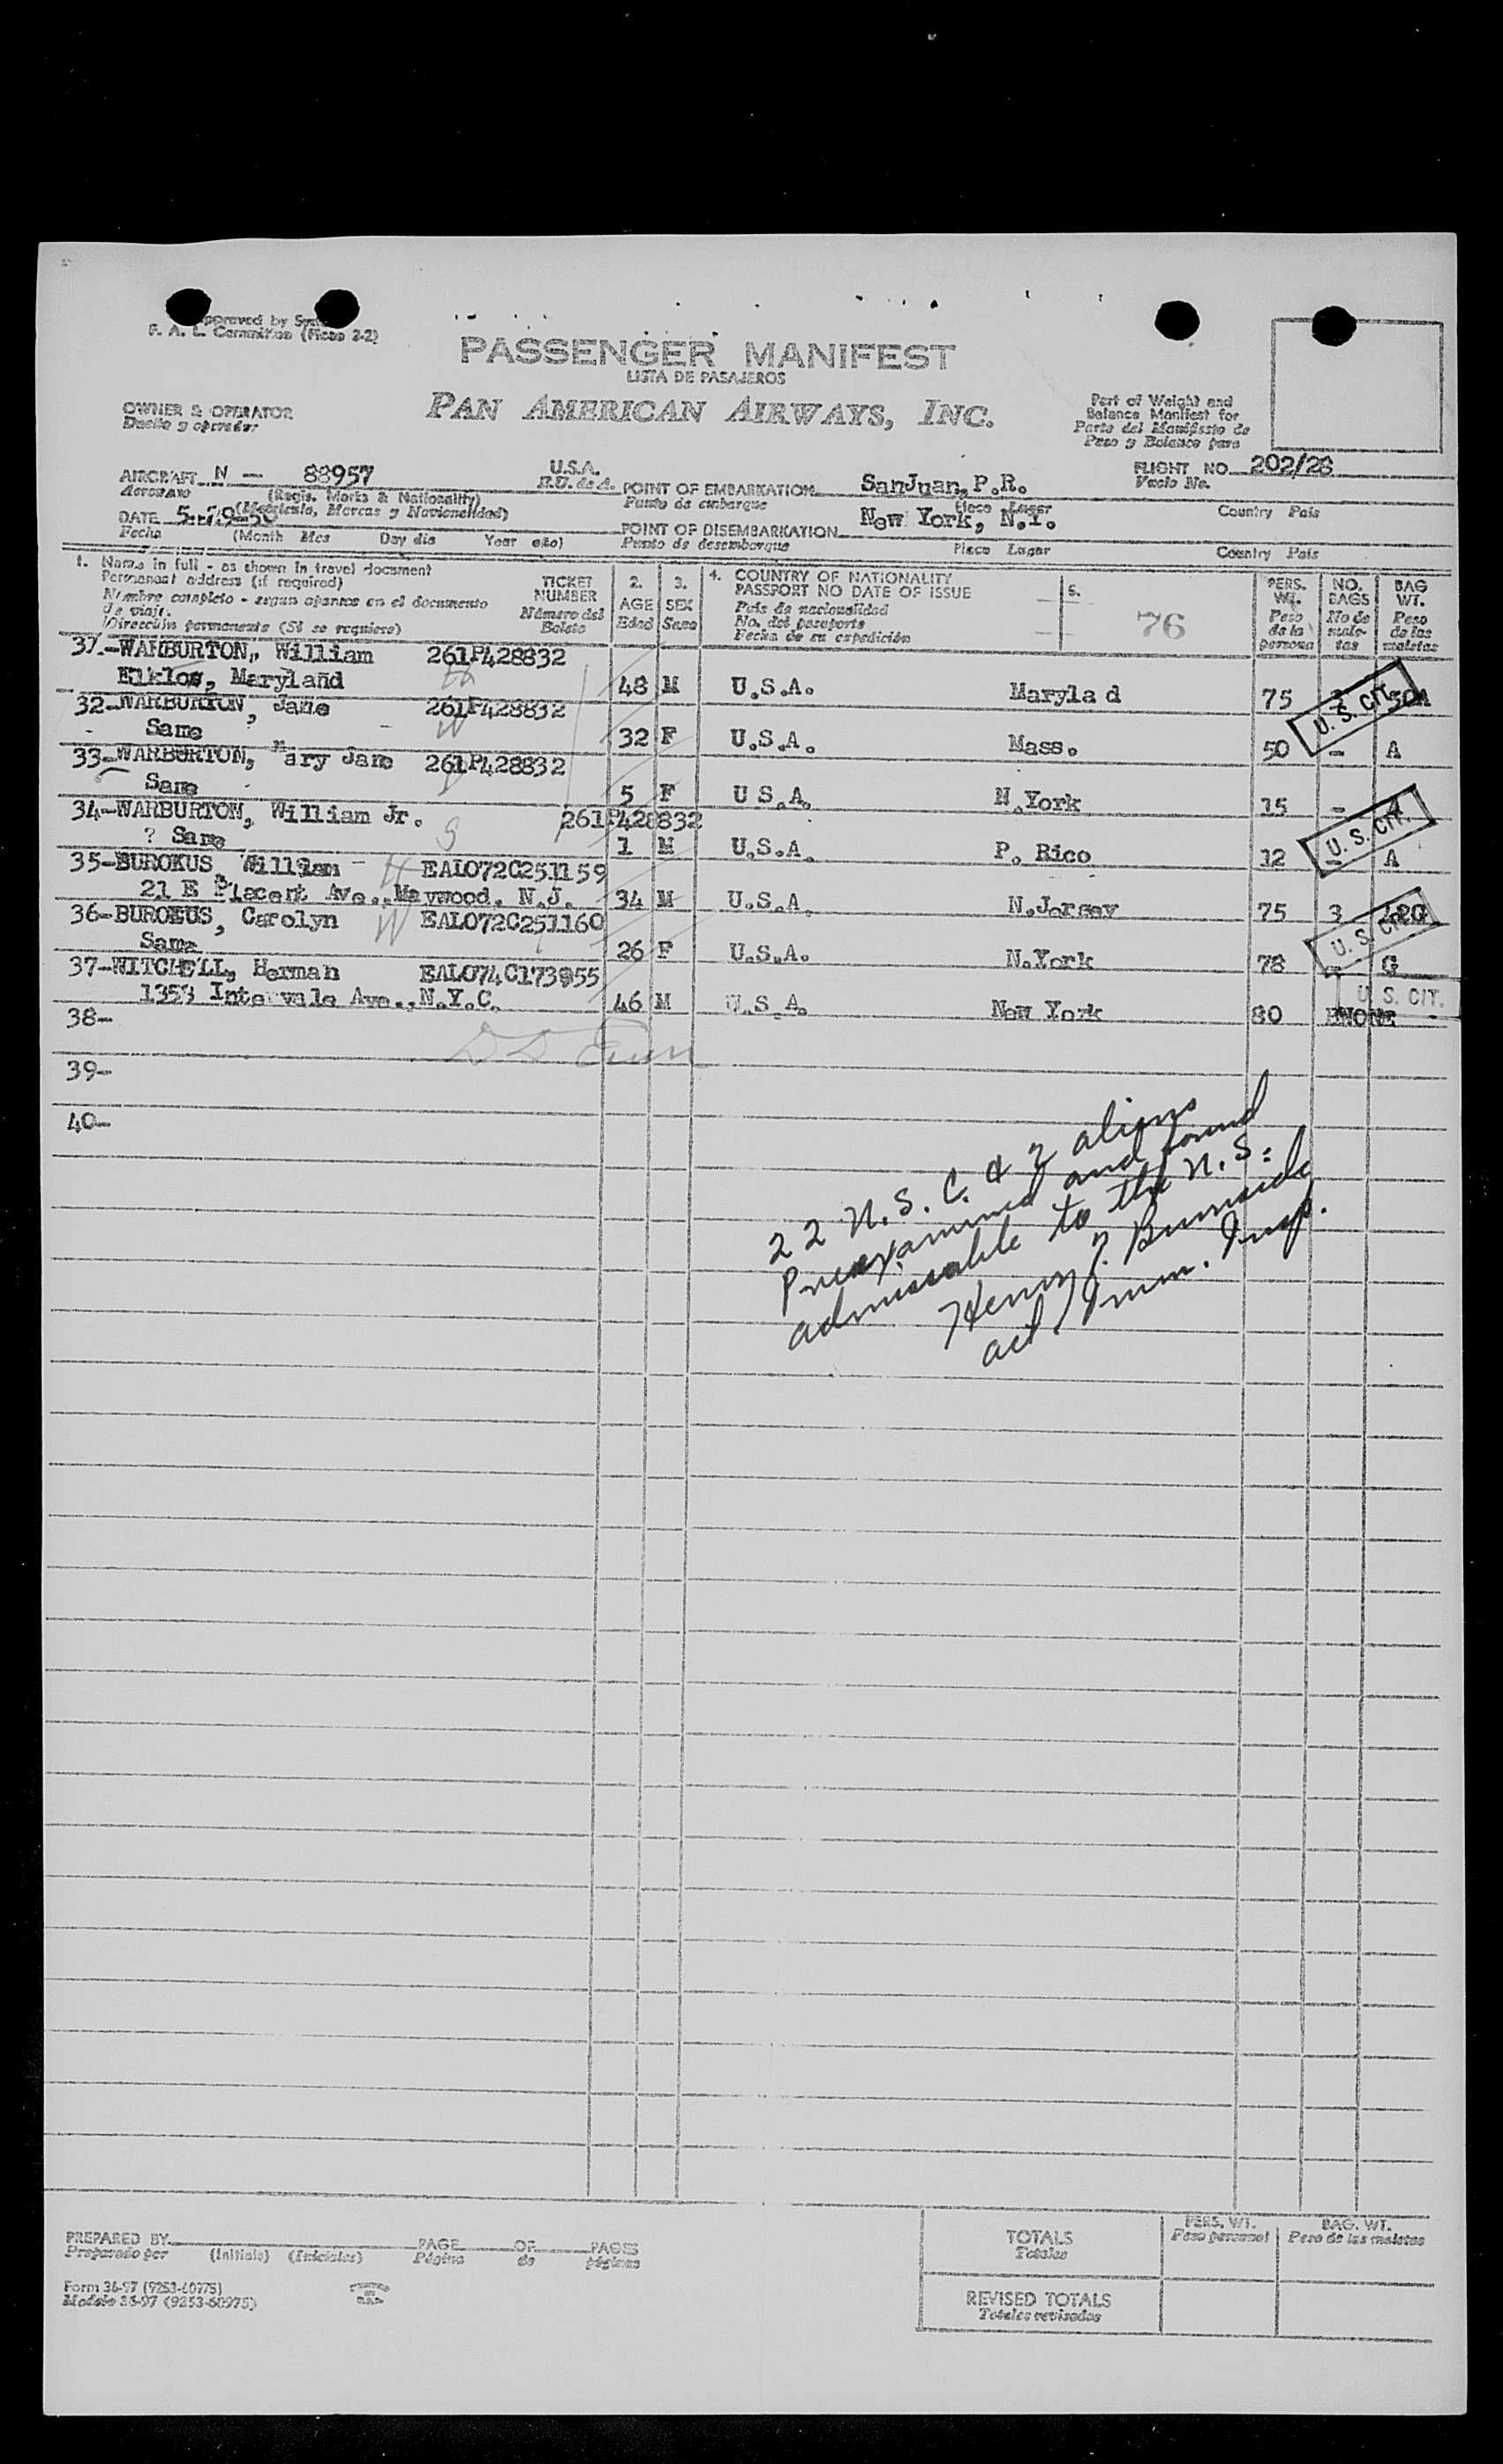 Approved by
F. A. L. Committee (Ficao 3-2)
PASSENGER MANIFEST
LISTA DE PASAJEROS
PAN AMERICAN AIRWAYS, INC.
OWNER & OPERATOR
Dueño y operador
Part of Weight and
Balance Manifest for
Parte del Manifiesto de
Peso y Balance para
AIRCRAFT N - 88957 U.S.A.
Aeronave (Regis. Marks & Nationality) E.U. de A.
(Matricula, Marcas y Nacionalidad)
POINT OF EMBARKATION SanJuan, P.R.
Punto de embarque Place Lugar Country Pais
FLIGHT NO. 202/28
Vuelo No.
DATE
Fecha (Month Mes Day dia Year año)
POINT OF DISEMBARKATION New York, N.Y.
Punto de desembarque Place Lugar Country Pais
1. Name in full - as shown in travel document
Permanent address (if required)
Nombre completo - segun aparece en el documento
de viaje.
Dirección permanente (Si se requiere)
TICKET
NUMBER
Número del
Boleto
2.
AGE
Edad
3.
SEX
Sexo
4. COUNTRY OF NATIONALITY
PASSPORT NO DATE OF ISSUE
Pais de nacionalidad
No. del pasaporte
Fecha de su expedición
5.
76
PERS.
WT.
Peso
de la
persona
NO.
BAGS
No de
male-
tas
BAG
WT.
Peso
de las
maletas
37-WARBURTON, William 261P428832
Elklos, Maryland 48 M U.S.A. Maryla d 75 50A
U. S. CIT.
32-WARBURTON, Jane 261P428832
Same 32 F U.S.A. Mass. 50 - A
33-WARBURTON, Mary Jane 261P428832
Same 5 F U S.A. N.York 15 -
34-WARBURTON, William Jr. 261P428832
? Same 1 M U.S.A. P. Rico 12 - A
U. S. CIT.
35-BUROKUS, William EAL072C251159
21 E Placent Ave., Maywood, N.J. 34 M U.S.A. N.Jersey 75 3
36-BUROKUS, Carolyn EAL072C251160
Same 26 F U.S.A. N.York 78 G
U. S. CIT.
37-WITCHELL, Herman EAL074C173955
Intervale Ave., N.Y.C. 46 M U.S.A. New York 80 NONE
U. S. CIT.
38-
39-
40-
22 U.S.C. & 2 aliens
Preexamined and found
admissable to the U.S.:
Henry J. Burnside
act. Imm. Insp.
PREPARED BY
Preparado por (Initials) (Iniciales)
PAGE OF PAGES
Página de páginas
TOTALS
Totales
PERS. WT.
Peso personal
BAG. WT.
Peso de las maletas
REVISED TOTALS
Totales revisados
Form 36-97 (9253-60975)
Modelo 36-97 (9253-60975)